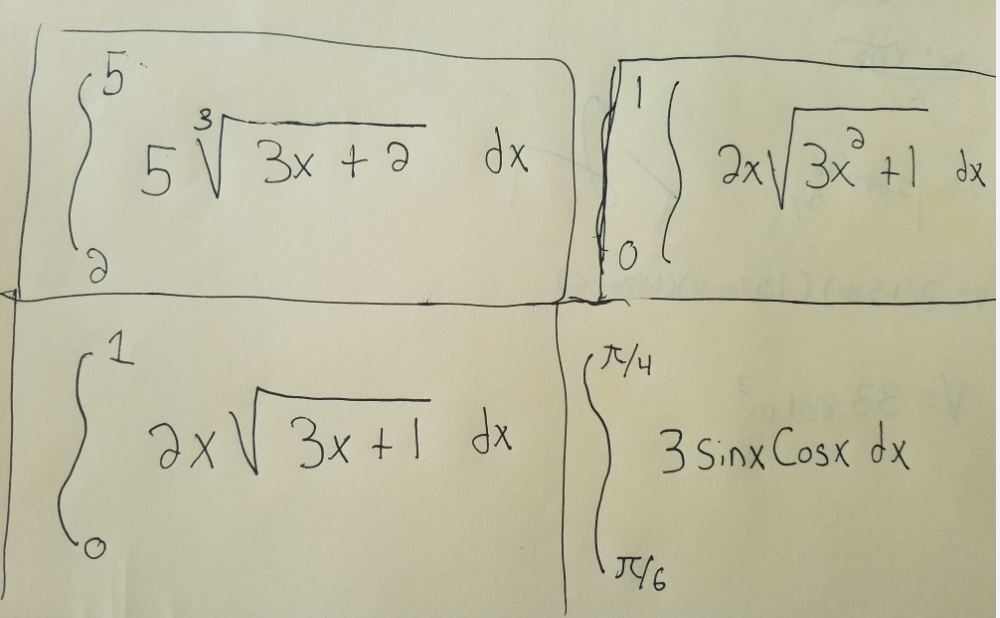 ∫₂⁵ 5 ∛(3x + 2) dx
∫₀¹ 2x√(3x² + 1) dx
∫₀¹ 2x √(3x + 1) dx
∫_{π/6}^{π/4} 3 sinx Cosx dx